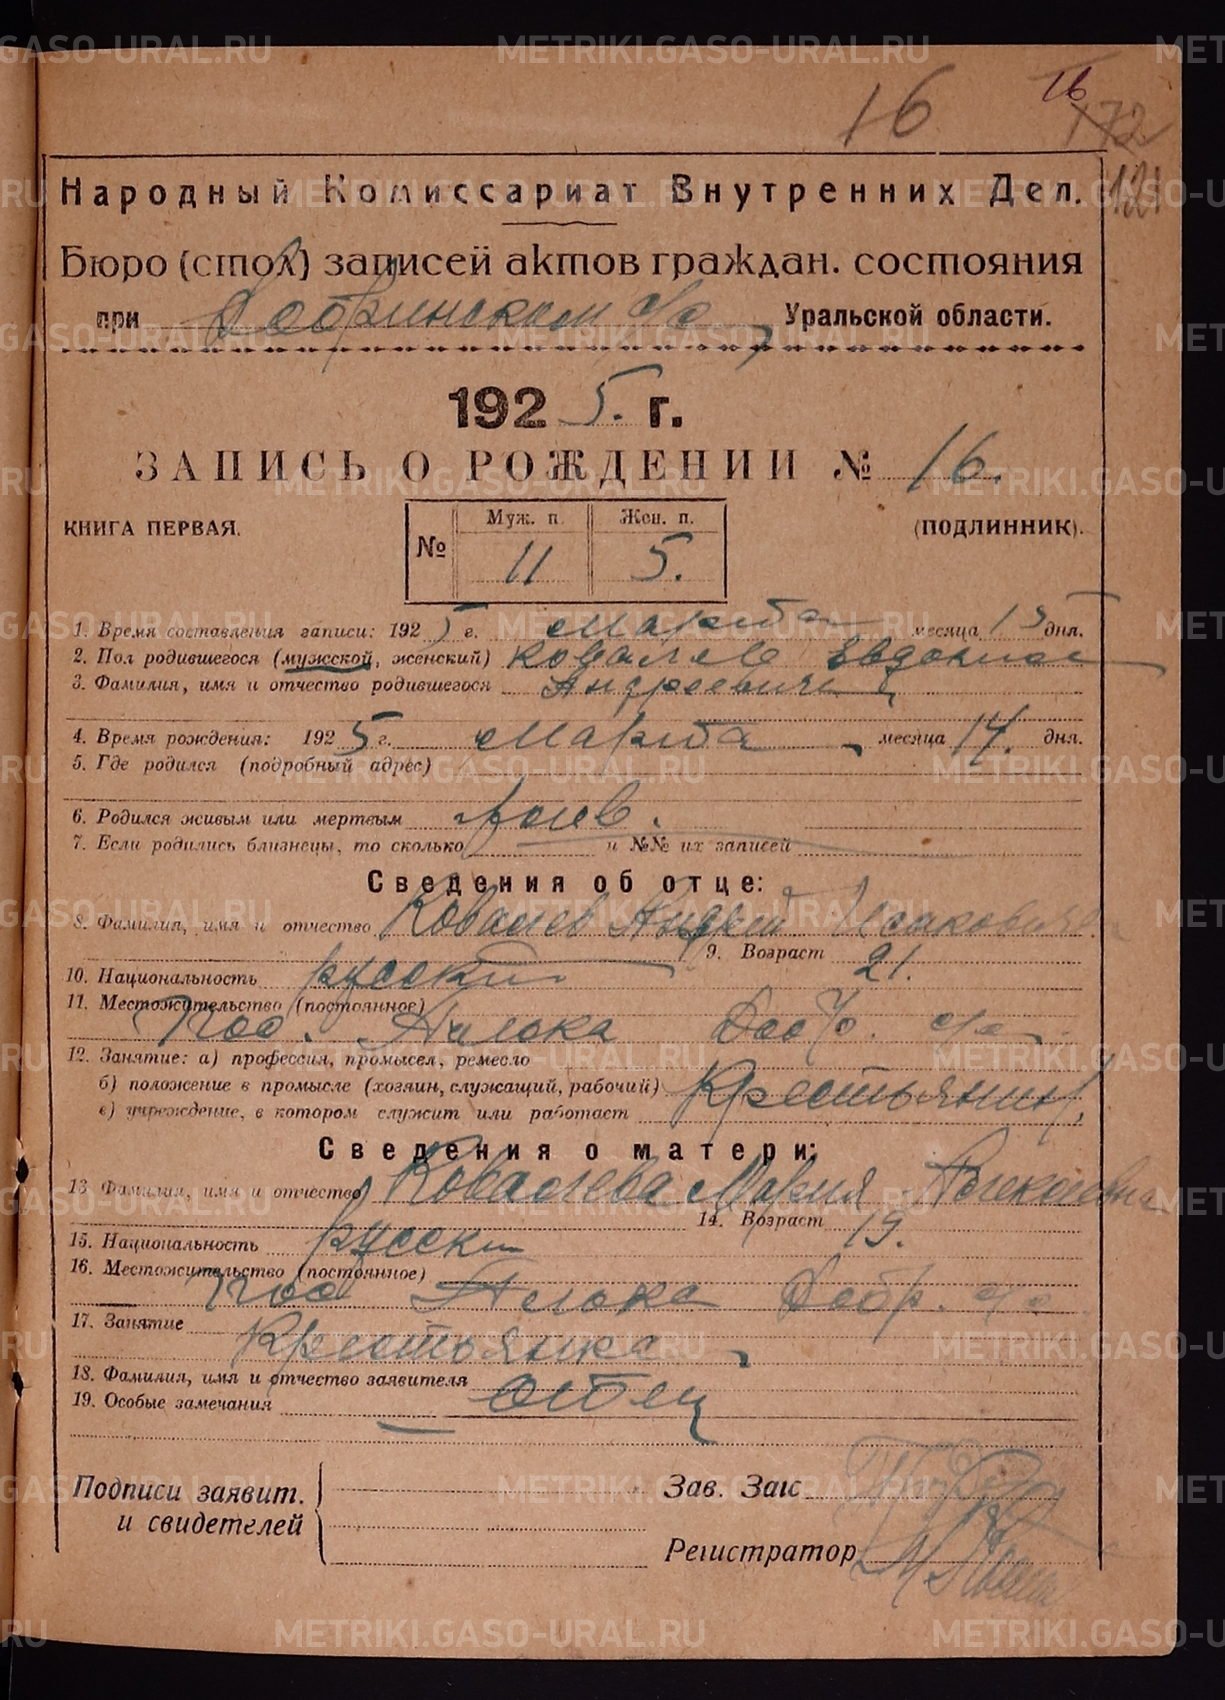 16 16
172
121
Народный Комиссариат Внутренних Дел.
Бюро (стол) записей актов граждан. состояния
при Добринском с/с Уральской области.
1925. г.
ЗАПИСЬ О РОЖДЕНИИ № 16.
КНИГА ПЕРВАЯ. (ПОДЛИННИК).
№ Муж. п. Жен. п.
11 5.
1. Время составления записи: 1925 г. марта месяца 15 дня.
2. Пол родившегося (мужской, женский) Ковалев Евдоким
3. Фамилия, имя и отчество родившегося Андреевич
4. Время рождения: 1925 г. марта месяца 14. дня.
5. Где родился (подробный адрес)
6. Родился живым или мертвым
7. Если родились близнецы, то сколько и №№ их записей
Сведения об отце:
8. Фамилия, имя и отчество Ковалев Андрей Исакович
9. Возраст 21.
10. Национальность русский
11. Местожительство (постоянное)
Пос. с/с
12. Занятие: а) профессия, промысел, ремесло
б) положение в промысле (хозяин, служащий, рабочий) Крестьянин,
в) учреждение, в котором служит или работает
Сведения о матери:
13. Фамилия, имя и отчество Ковалева Мария
14. Возраст 19.
15. Национальность русск
16. Местожительство (постоянное)
Пос Добр. с/с
17. Занятие
Крестьянка
18. Фамилия, имя и отчество заявителя отец
19. Особые замечания
Подписи заявит. и свидетелей
Зав. Загс
Регистратор
METRIKI.GASO-URAL.RU